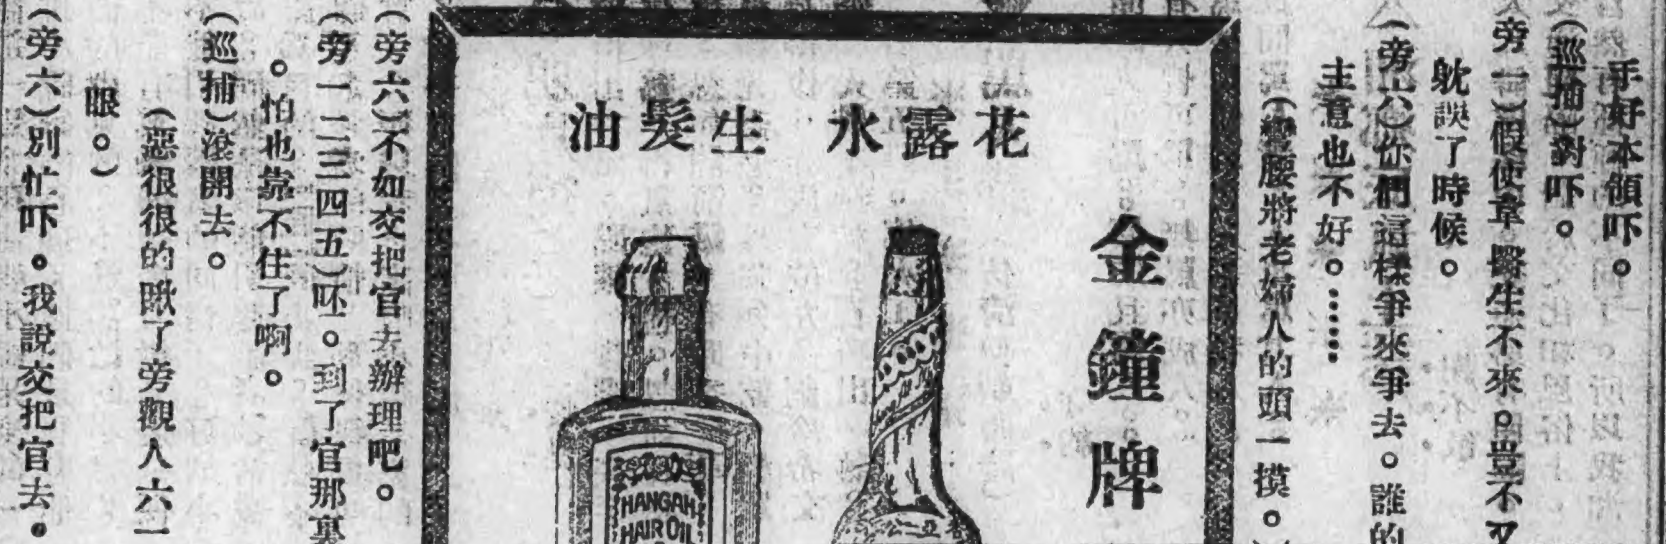 手好本領吓。
(巡捕)對吓。
旁一)假使韋醫生不來。豈不又
躭誤了時候。
(旁六)你們這樣爭來爭去。誰的
主意也不好。……
(彎腰將老婦人的頭一摸。)
花露水 生髮油
金鐘牌
HANGAH
HAIR OIL
(旁六)不如交把官去辦理吧。
(旁一二三四五)呸。到了官那裏
。怕也靠不住了啊。
(巡捕)滾開去。
(惡很很的瞅了旁觀人六一
眼。)
(旁六)別忙吓。我說交把官去。